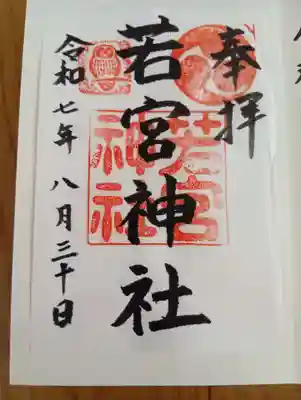 奉拝
若宮神社
若宮
神社
令和七年 八月三十日